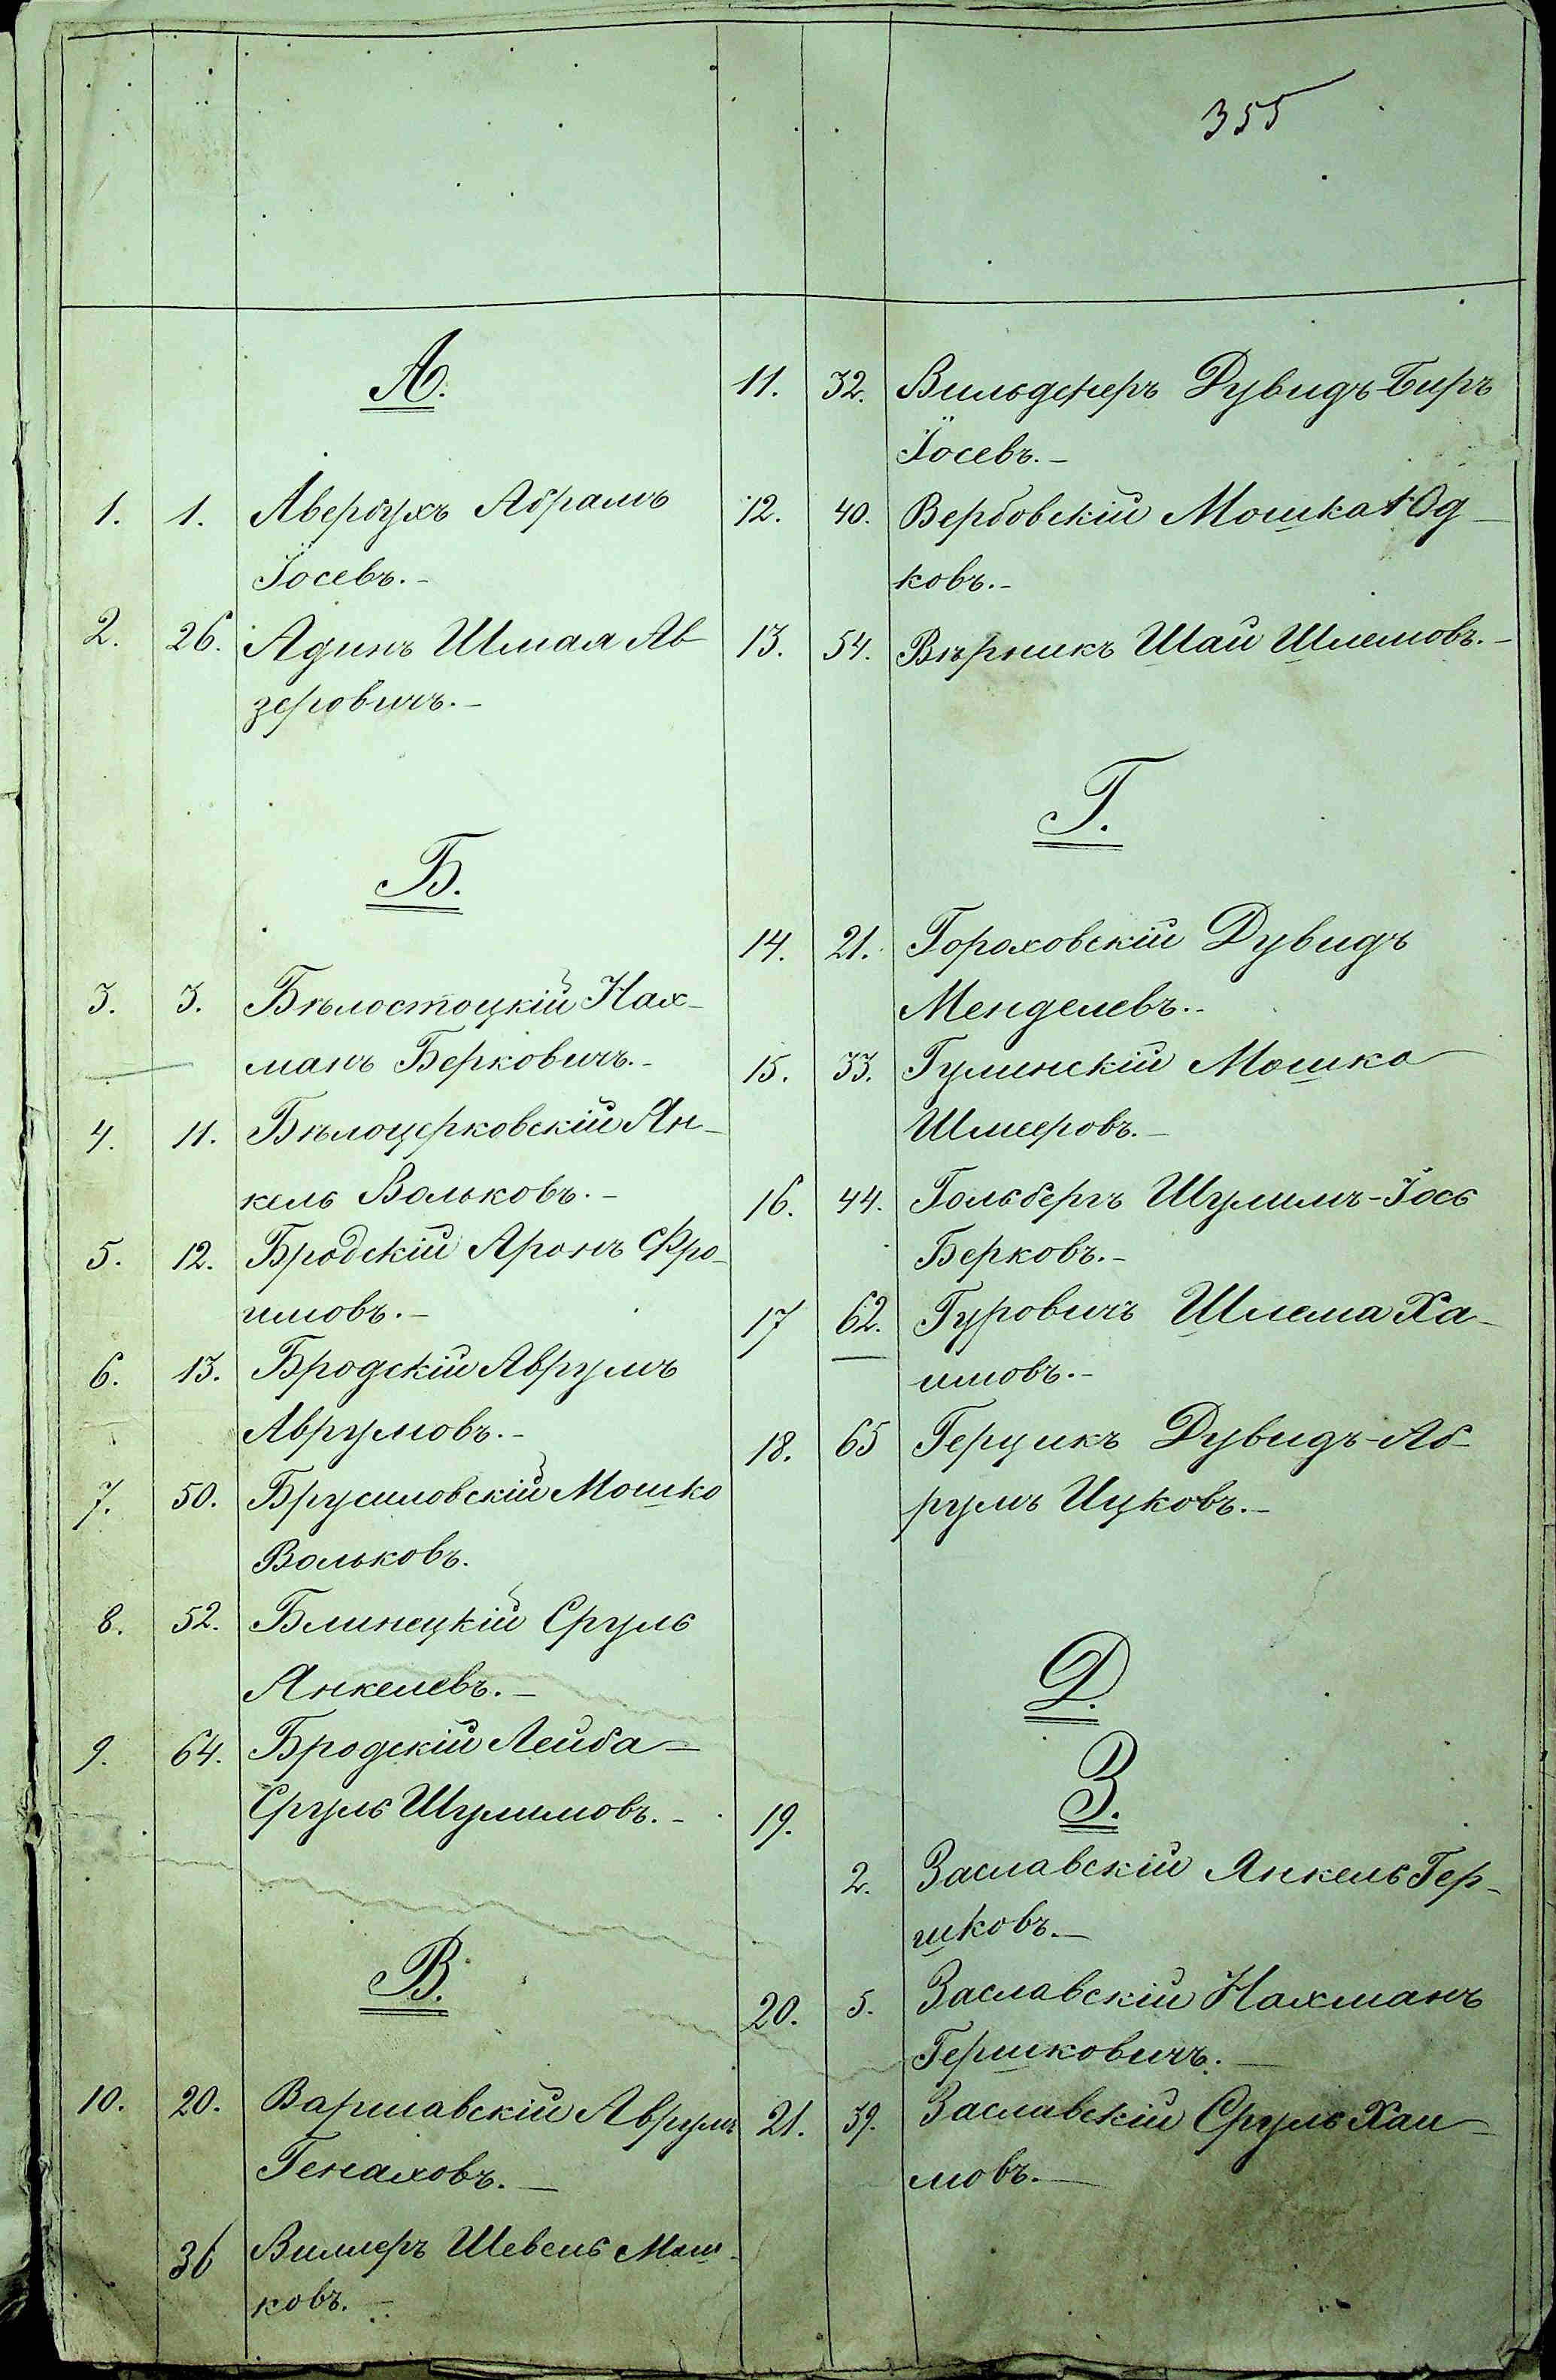 355
А.
1. 1. Авербухъ Абрамъ
Іосевъ.-
2. 26. Адинъ Шмая Ав
зеровичъ.-
Б.
3. 3. Бѣлостоцкій Нах-
манъ Берковичъ.-
4. 11. Бѣлоцерковскій Ян-
кель Вольковъ.-
5. 12. Бродскій Аронъ Фро-
имовъ.-
6. 13. Бродскій Аврумъ
Аврумовъ.-
7. 50. Брусиловскій Мошко
Вольковъ.
8. 52. Блинецкій Сруль
Янкелевъ.-
9. 64. Бродскій Лейба-
Сруль Шулимовъ.-
В.
10. 20. Варшавскій Аврумъ
Генаховъ.-
36 Виллеръ Шевель Мош-
ковъ.-
11. 32. Вильдферъ Дувидъ-Биръ
Іосевъ.-
12. 40. Вербовскій Мошка Юд-
ковъ.-
13. 54. Вѣрникъ Шаи Шлемовъ.-
Г.
14. 21. Гороховскій Дувидъ
Менделевъ.-
15. 33. Гулинскій Мошко
Шмееровъ.-
16. 44. Гольбергъ Шулимъ-Іось
Берковъ.-
17 62. Гуровичъ Шлема Ха-
имовъ.-
18. 65 Герцикъ Дувидъ-Аб-
румъ Ицковъ.-
Д.
З.
19.
2. Заславскій Янкель Гер-
шковъ.-
20. 5. Заславскій Нахманъ
Гершковичъ.-
21. 39. Заславскій Сруль Хаи-
мовъ.-